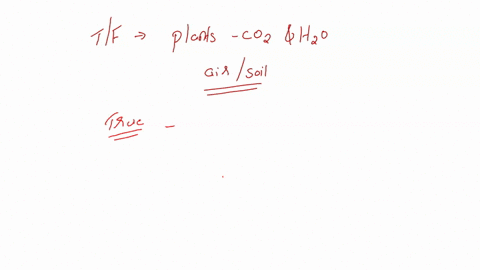 T/F → plants - CO2 & H2O
air/soil
True -